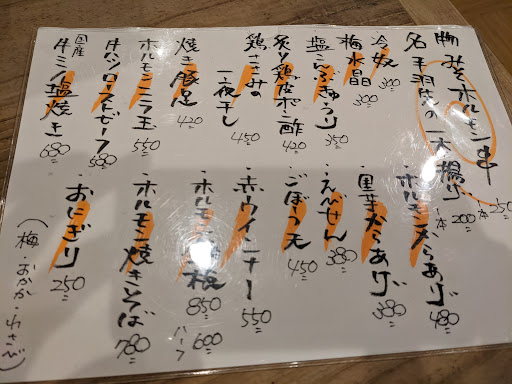 胸みそホルモン一串 一本 250
名古屋手羽先の一本揚げ 一本 200
冷奴 300
梅水晶 300
塩こんぶきゅうり 350
炙り鶏皮ポン酢 420
鶏ささみの一夜干し 450
焼き豚足 420
ホルモンニラ玉 550
牛ハツローストビーフ 580
国産牛ミノ塩焼き 680
ホルモン天からあげ 480
里芋からあげ 380
えびせん 380
ごぼう天 450
赤ウインナー 550
ホルモン 板 850 ハーフ 600
ホルモン焼きそば 780
おにぎり 250
(梅・おかか・わさび)